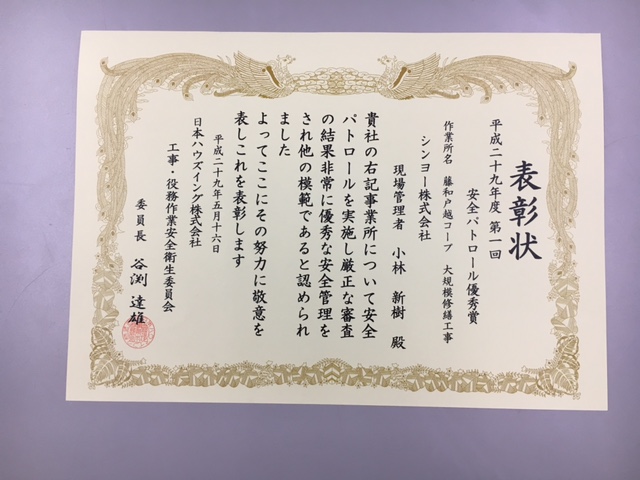 表彰状
平成二十九年度 第一回
安全パトロール優秀賞
作業所名 藤和戸越コープ 大規模修繕工事
シンヨー株式会社
現場管理者 小林 新樹 殿
貴社の右記事業所について安全
パトロールを実施し厳正な審査
の結果非常に優秀な安全管理を
され他の模範であると認められ
ました
よってここにその努力に敬意を
表しこれを表彰します
平成二十九年五月十六日
日本ハウズイング株式会社
工事・役務作業安全衛生委員会
委員長 谷渕 達雄